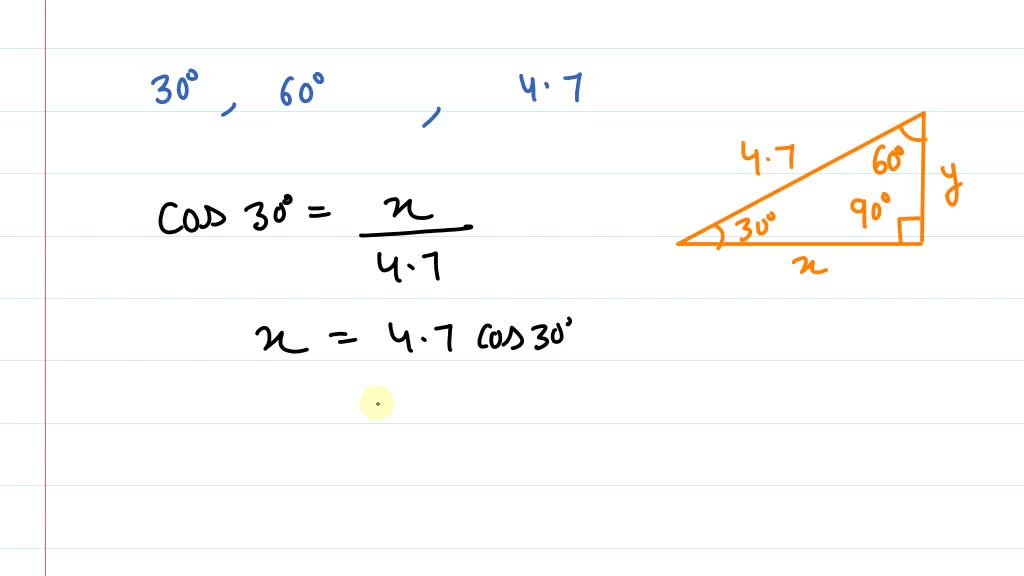 30°, 60°, 4.7
cos 30° = x / 4.7
x = 4.7 cos 30°
4.7
60°
y
90°
30°
x